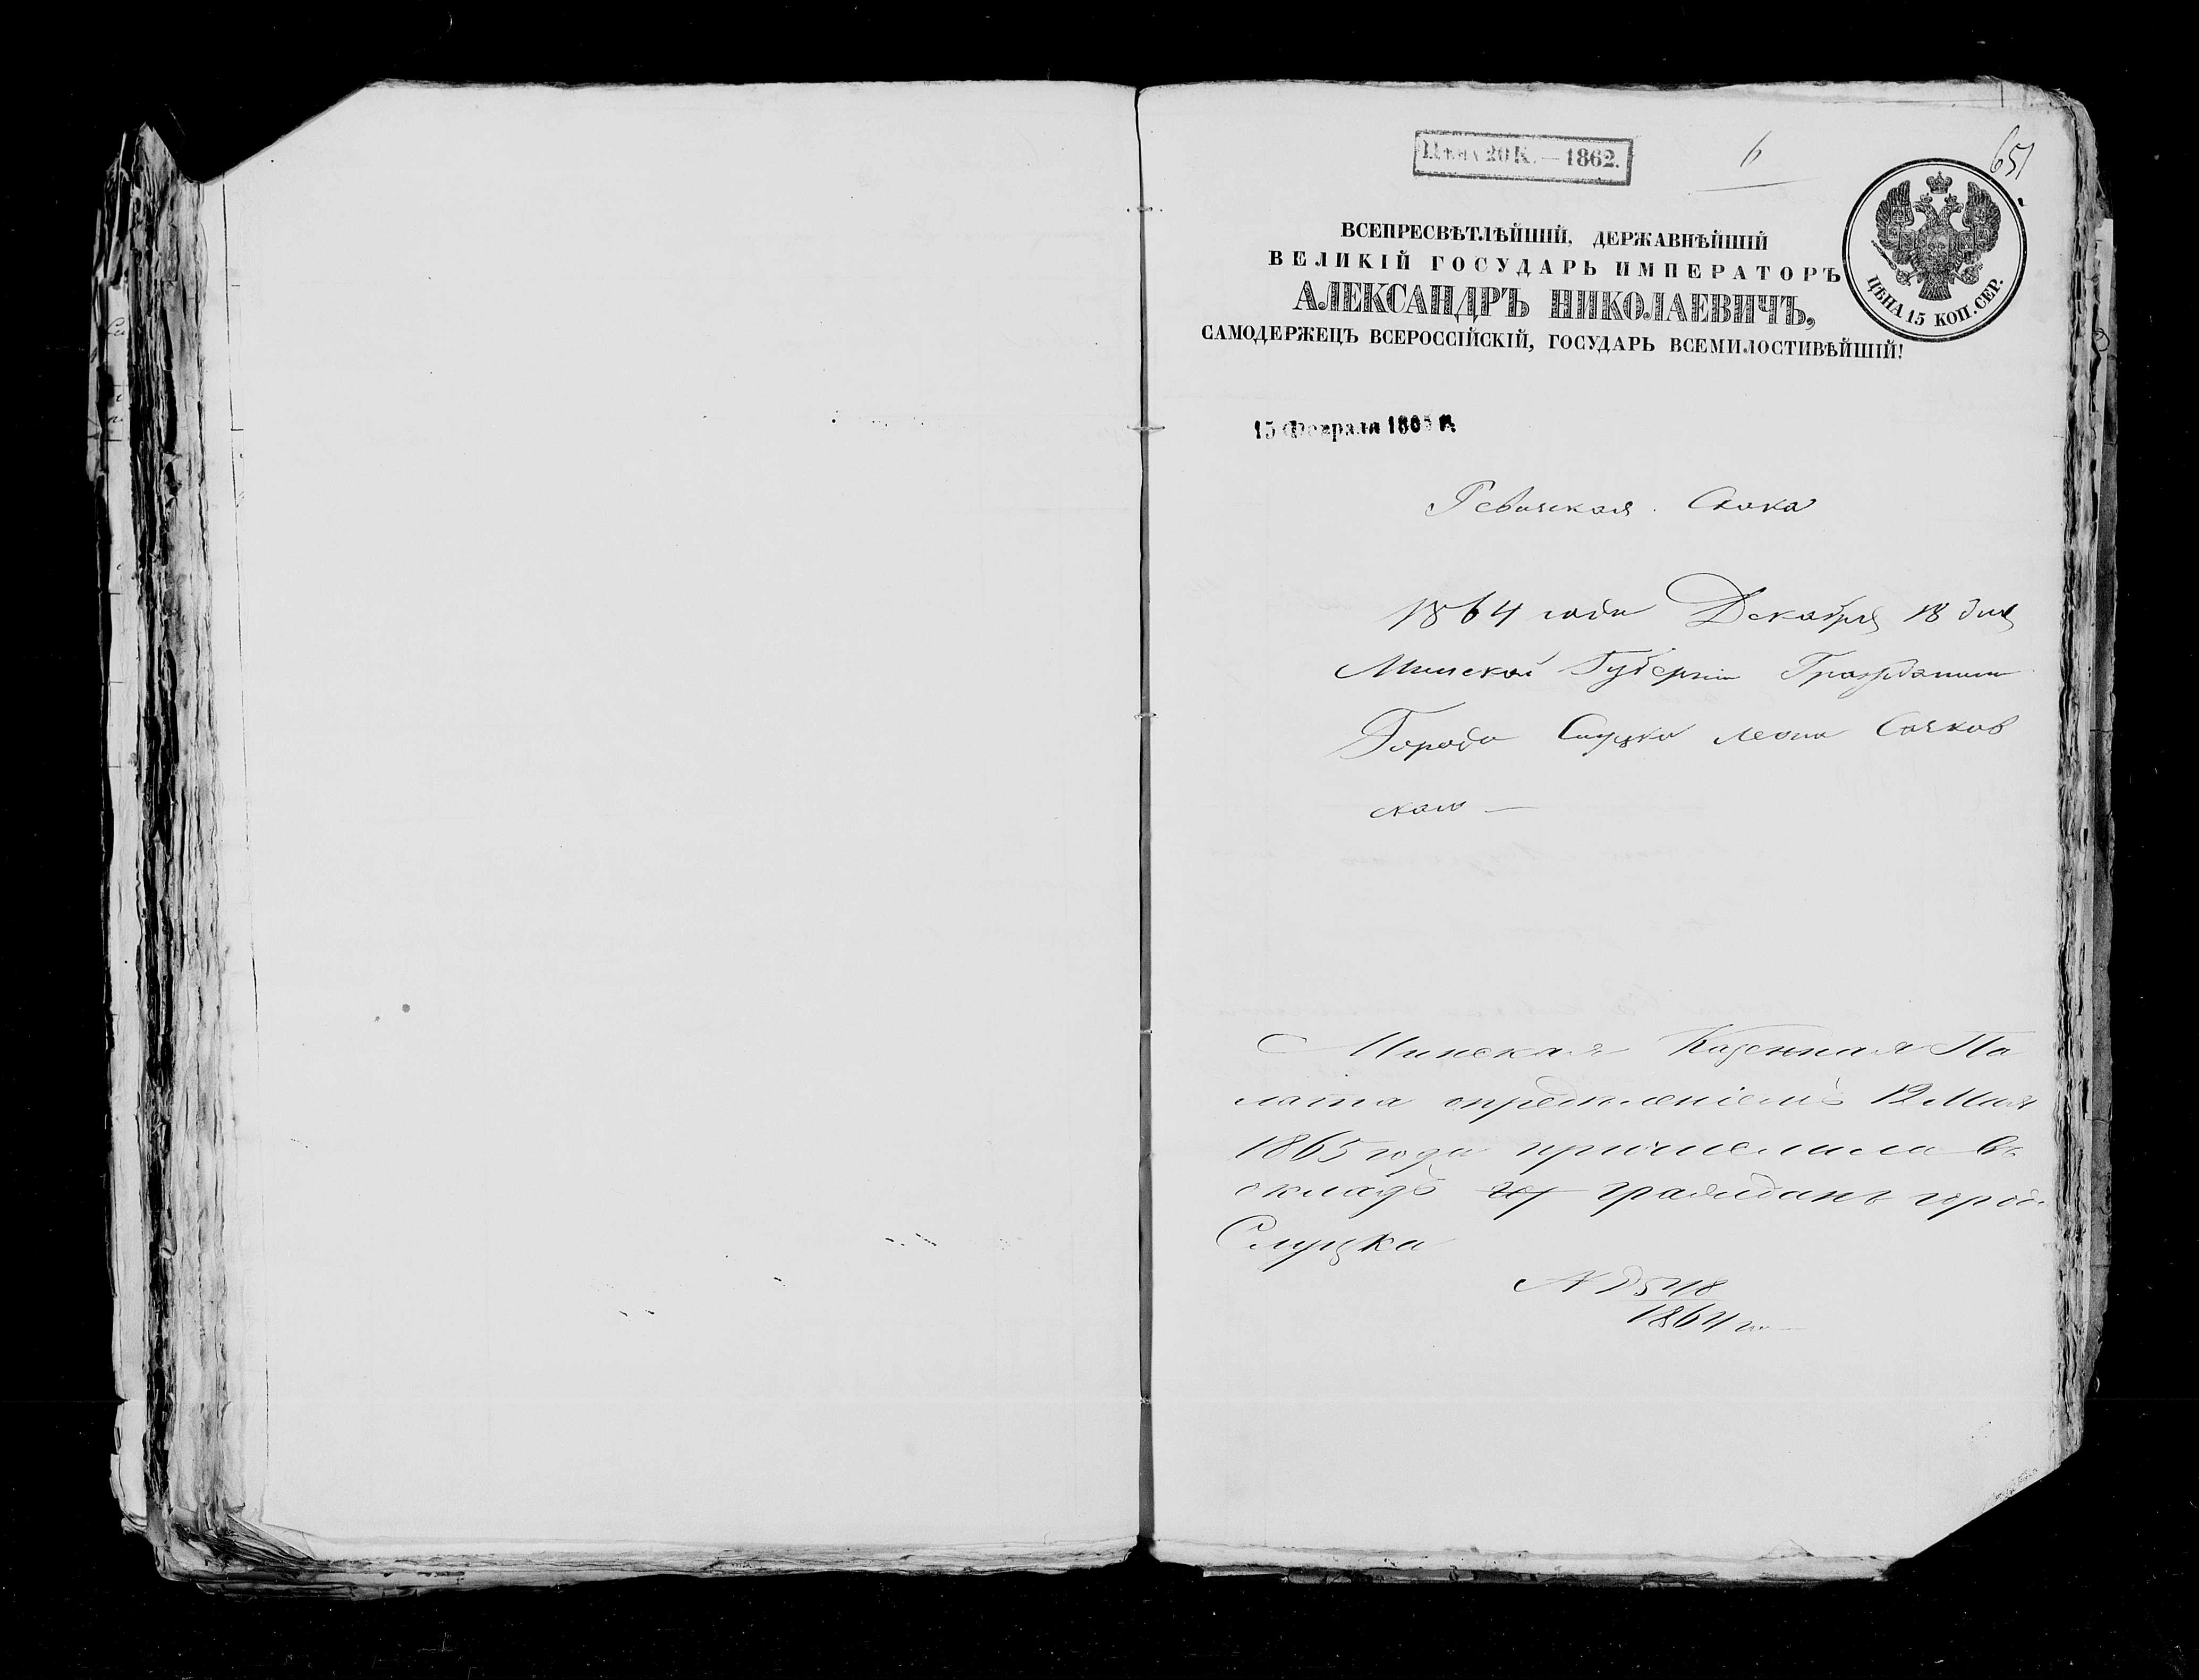 Цѣна 20 К. — 1862.
6
651
ВСЕПРЕСВѢТЛѢЙШІЙ, ДЕРЖАВНѢЙШІЙ
ВЕЛИКІЙ ГОСУДАРЬ ИМПЕРАТОРЪ
АЛЕКСАНДРЪ НИКОЛАЕВИЧЪ,
САМОДЕРЖЕЦЪ ВСЕРОССІЙСКІЙ, ГОСУДАРЬ ВСЕМИЛОСТИВѢЙШІЙ!
ЦѢНА 15 КОП. СЕР.
15 Февраля 1865 г.
Ревизская Скока
1864 года Декабря 18 дня
Минской Губерніи Гражданин
Города Слуцка Леона Сачков
ском —
Минская Казенная Па
лата опредѣленіемъ 12 Мая
1865 года причислила въ
окладъ гражданъ города
Слуцка
1864 г.